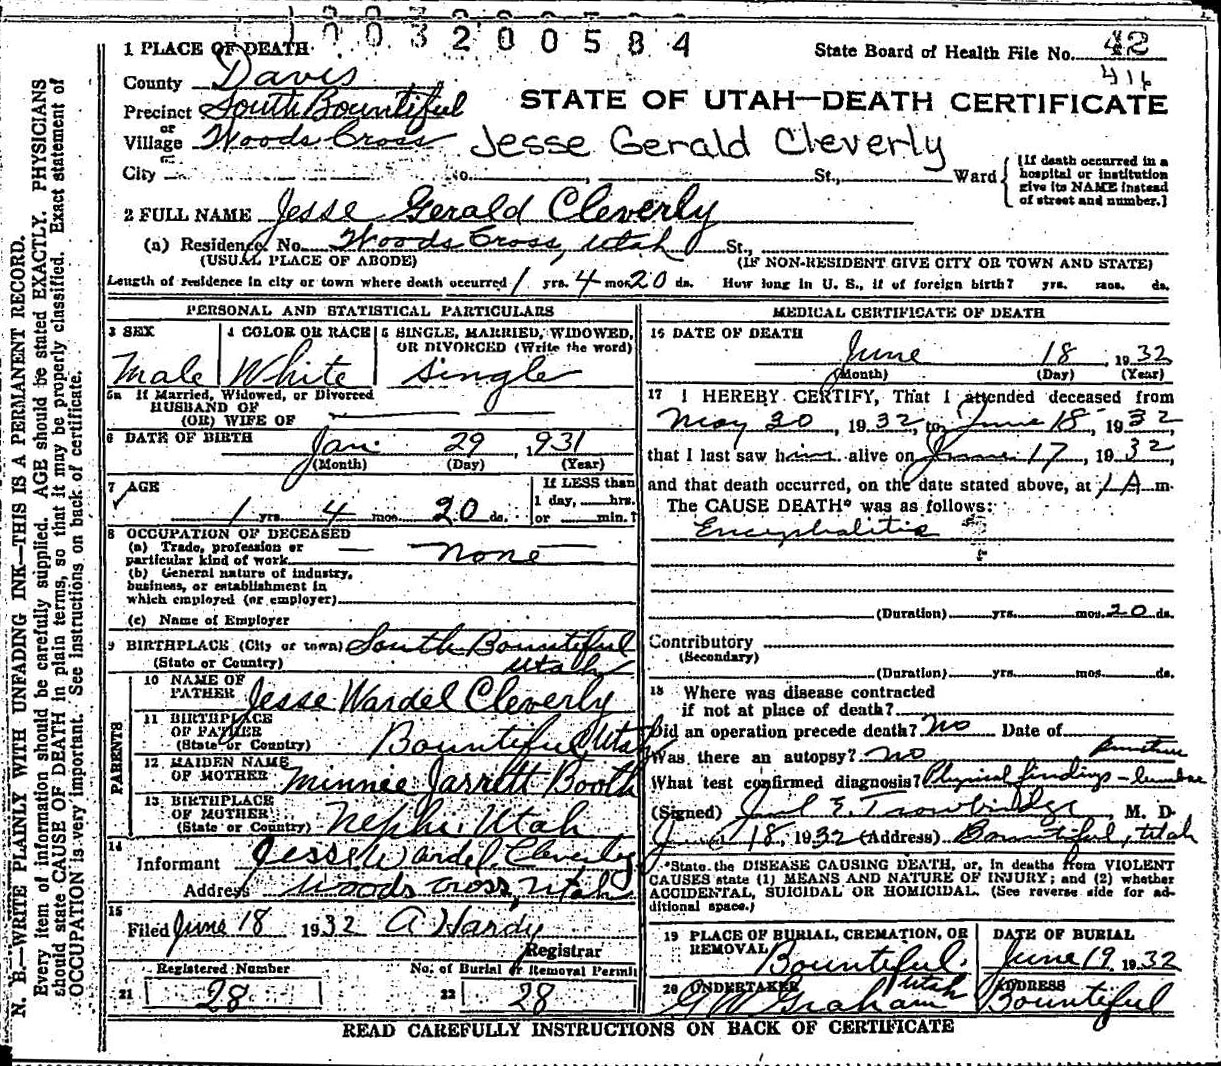 1003200584
1 PLACE OF DEATH
State Board of Health File No. 42
416
County Davis
Precinct South Bountiful
STATE OF UTAH—DEATH CERTIFICATE
or
Village Woods Cross
Jesse Gerald Cleverly
or
City No. , St., Ward
[If death occurred in a
hospital or institution
give its NAME instead
of street and number.]
2 FULL NAME Jesse Gerald Cleverly
(a) Residence, No. Woods Cross, Utah St.,
(USUAL PLACE OF ABODE) (IF NON-RESIDENT GIVE CITY OR TOWN AND STATE)
Length of residence in city or town where death occurred 1 yrs. 4 mos. 20 ds. How long in U. S., if of foreign birth? yrs. mos. ds.
PERSONAL AND STATISTICAL PARTICULARS
3 SEX
Male
4 COLOR OR RACE
White
5 SINGLE, MARRIED, WIDOWED,
OR DIVORCED (Write the word)
Single
5a If Married, Widowed, or Divorced
HUSBAND OF
(OR) WIFE OF
6 DATE OF BIRTH Jan 29, 1931
(Month) (Day) (Year)
7 AGE
1 yrs. 4 mos. 20 ds.
If LESS than
1 day, hrs.
or min.?
8 OCCUPATION OF DECEASED
(a) Trade, profession or
particular kind of work — none
(b) General nature of industry,
business, or establishment in
which employed (or employer)
(c) Name of Employer
9 BIRTHPLACE (City or town) South Bountiful
(State or Country) Utah
PARENTS
10 NAME OF
FATHER Jesse Wardel Cleverly
11 BIRTHPLACE
OF FATHER
(State or Country) Bountiful, Utah
12 MAIDEN NAME
OF MOTHER Minnie Jarrett Booth
13 BIRTHPLACE
OF MOTHER
(State or Country) Nephi, Utah
14
Informant Jesse Wardel Cleverly
Address Woods Cross, Utah
15
Filed June 18 1932 A Hardy
Registrar
Registered Number No. of Burial or Removal Permit
21 28 22 28
MEDICAL CERTIFICATE OF DEATH
16 DATE OF DEATH
June 18, 1932
(Month) (Day) (Year)
17 I HEREBY CERTIFY, That I attended deceased from
May 30, 1932, to June 18, 1932,
that I last saw him alive on June 17, 1932,
and that death occurred, on the date stated above, at 1 A m.
The CAUSE DEATH* was as follows:
Encephalitis
(Duration) yrs. mos. 20 ds.
Contributory
(Secondary)
(Duration) yrs. mos. ds.
18 Where was disease contracted
if not at place of death?
Did an operation precede death? No Date of
Was there an autopsy? No
puncture
What test confirmed diagnosis? Physical findings - lumbar
(Signed) E. Trowbridge, M. D.
June 18, 1932 (Address) Bountiful, Utah
*State the DISEASE CAUSING DEATH, or, in deaths from VIOLENT
CAUSES state (1) MEANS AND NATURE OF INJURY; and (2) whether
ACCIDENTAL, SUICIDAL OR HOMICIDAL. (See reverse side for ad-
ditional space.)
19 PLACE OF BURIAL, CREMATION, OR
REMOVAL
Bountiful.
Utah
DATE OF BURIAL
June 19, 1932
20 UNDERTAKER
G W Graham
ADDRESS
Bountiful
READ CAREFULLY INSTRUCTIONS ON BACK OF CERTIFICATE
N. B.—WRITE PLAINLY WITH UNFADING INK—THIS IS A PERMANENT RECORD.
Every item of information should be carefully supplied. AGE should be stated EXACTLY. PHYSICIANS
should state CAUSE OF DEATH in plain terms, so that it may be properly classified. Exact statement of
OCCUPATION is very important. See instructions on back of certificate.